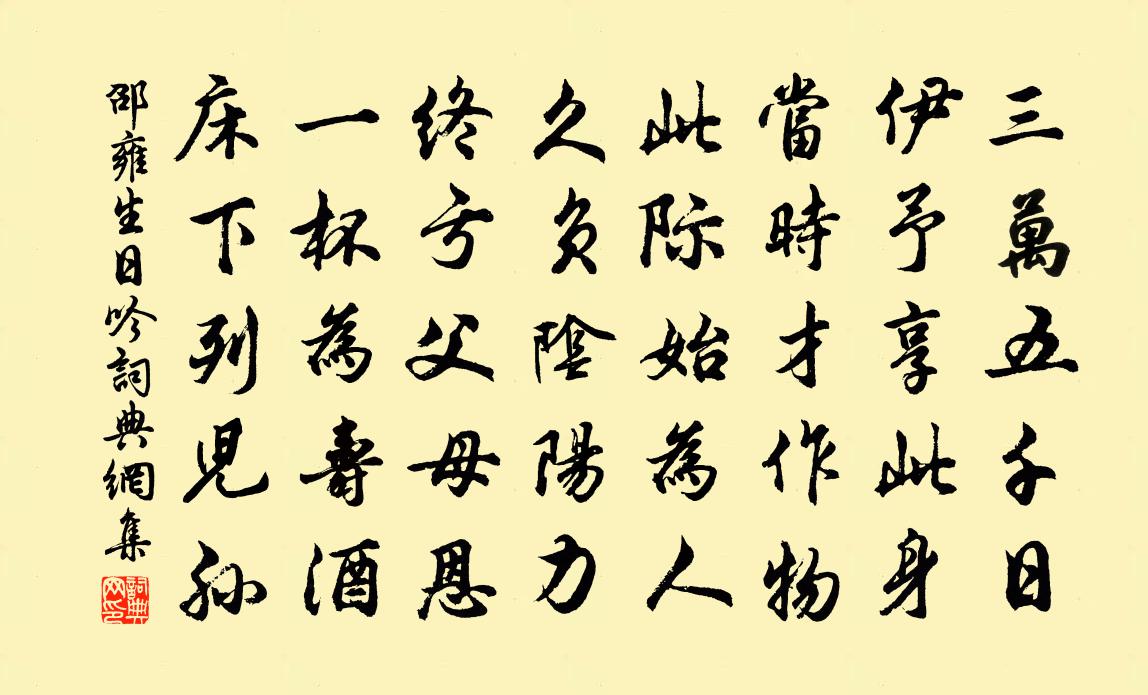 三萬五千日
伊予享此身
當時才作物
此际始為人
久负陰陽力
终亏父母恩
一杯為壽酒
床下列児孙
邵雍生日吟詞典網集
詞典网印